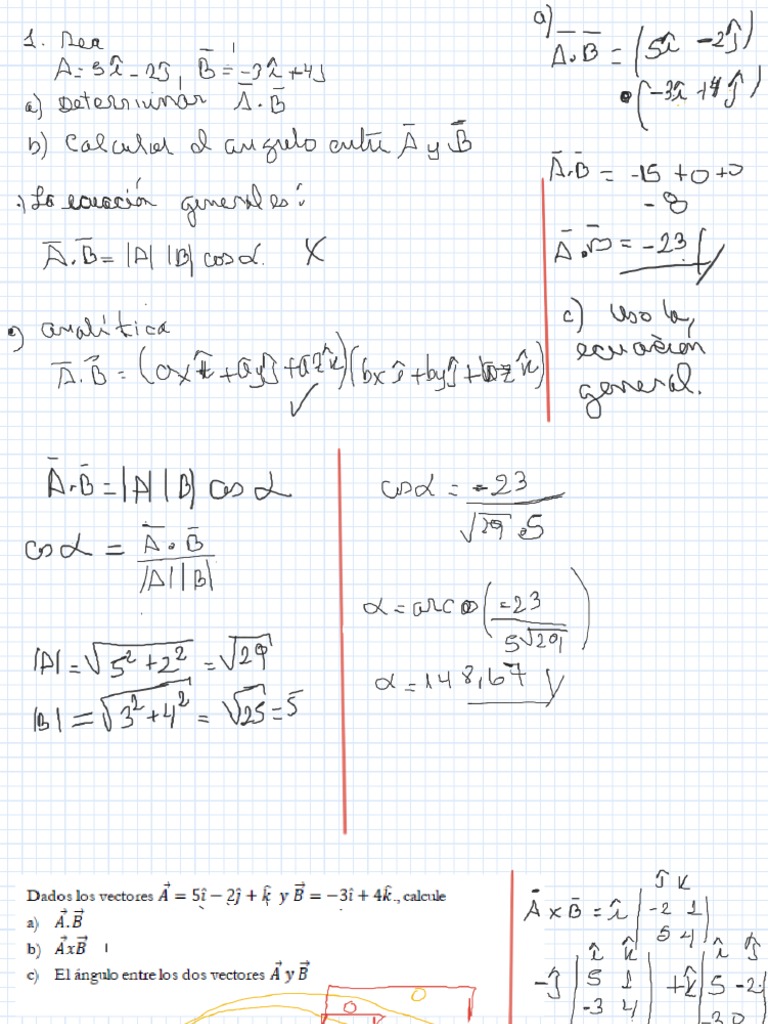 1. Sea
A = 5î - 2ĵ, B̄ = -3î + 4ĵ
a) Determinar Ā.B̄
b) Calcular el angulo entre Ā y B̄
.) La ecuación general es:
Ā.B̄ = |A| |B| cos α. X
.) analítica
Ā.B̄ = (ax î + ay ĵ + az k̂)(bx î + by ĵ + bz k̂)
✓
a) Ā.B̄ = (5î - 2ĵ)
• (-3î + 4ĵ)
Ā.B̄ = -15 + 0 + 0
- 8
Ā.B̄ = -23
c) Uso la,
ecuación
general.
Ā.B̄ = |A| |B| cos α
cos α = Ā.B̄ / |A| |B|
|A| = √(5² + 2²) = √29
|B| = √(3² + 4²) = √25 = 5
cos α = -23 / √29 . 5
α = arco (-23 / 5√29)
α = 148,67
Dados los vectores A⃗ = 5î − 2ĵ + k̂ y B⃗ = −3î + 4k̂., calcule
a) A⃗.B⃗
b) A⃗xB⃗
c) El ángulo entre los dos vectores A⃗ y B⃗
ĵ k
Ā x B̄ = î |-2 1|
5 4
î k̂ î ĵ
-ĵ |5 1| + k̂ |5 -2
-3 4 -3 0
0
0